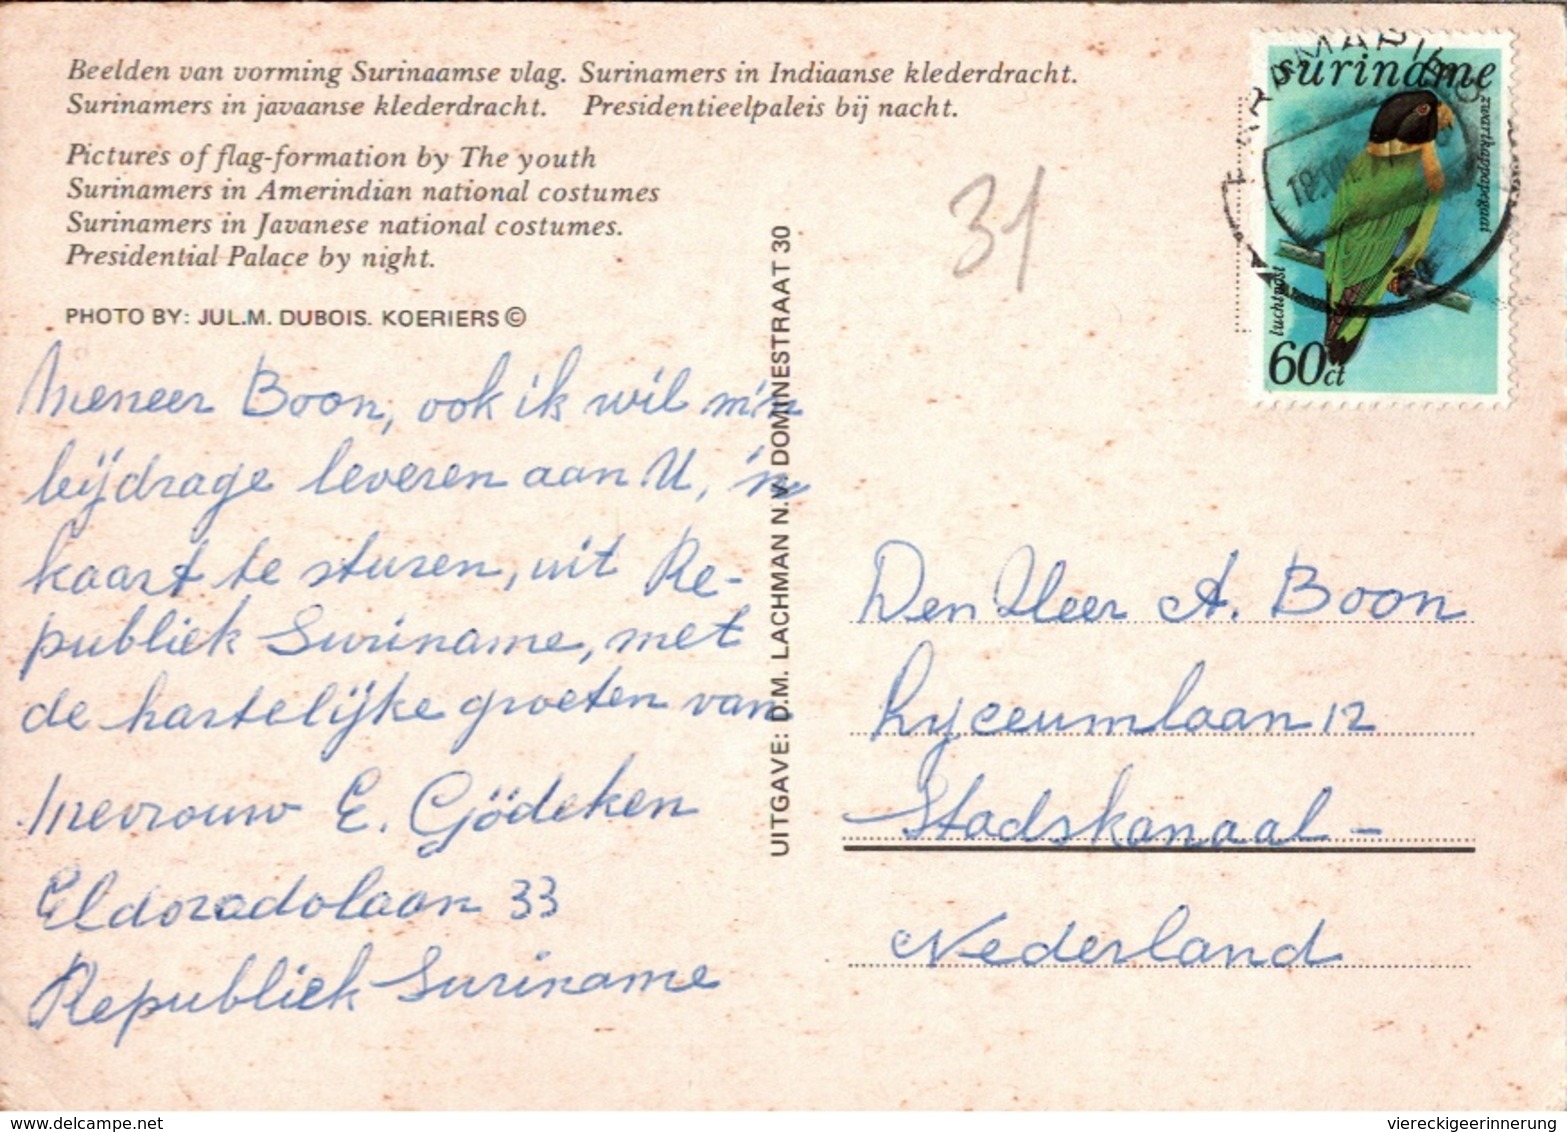 Beelden van vorming Surinaamse vlag. Surinamers in Indiaanse klederdracht.
Surinamers in javaanse klederdracht. Presidentieelpaleis bij nacht.
Pictures of flag-formation by The youth
Surinamers in Amerindian national costumes
Surinamers in Javanese national costumes.
Presidential Palace by night.
PHOTO BY: JUL.M. DUBOIS. KOERIERS ©
Meneer Boon, ook ik wil m'n
bijdrage leveren aan U, 'n
kaart te sturen, uit Re-
publiek Suriname, met
de hartelijke groeten van
Mevrouw E. Gödeken
Eldoradolaan 33
Republiek Suriname
UITGAVE: D.M. LACHMAN N.V. DOMINESTRAAT 30
31
suriname
zwartkappapegaai
luchtpost
60ct
Den Heer A. Boon
Lyceumlaan 12
Stadskanaal -
Nederland
delcampe.net
viereckigeerinnerung